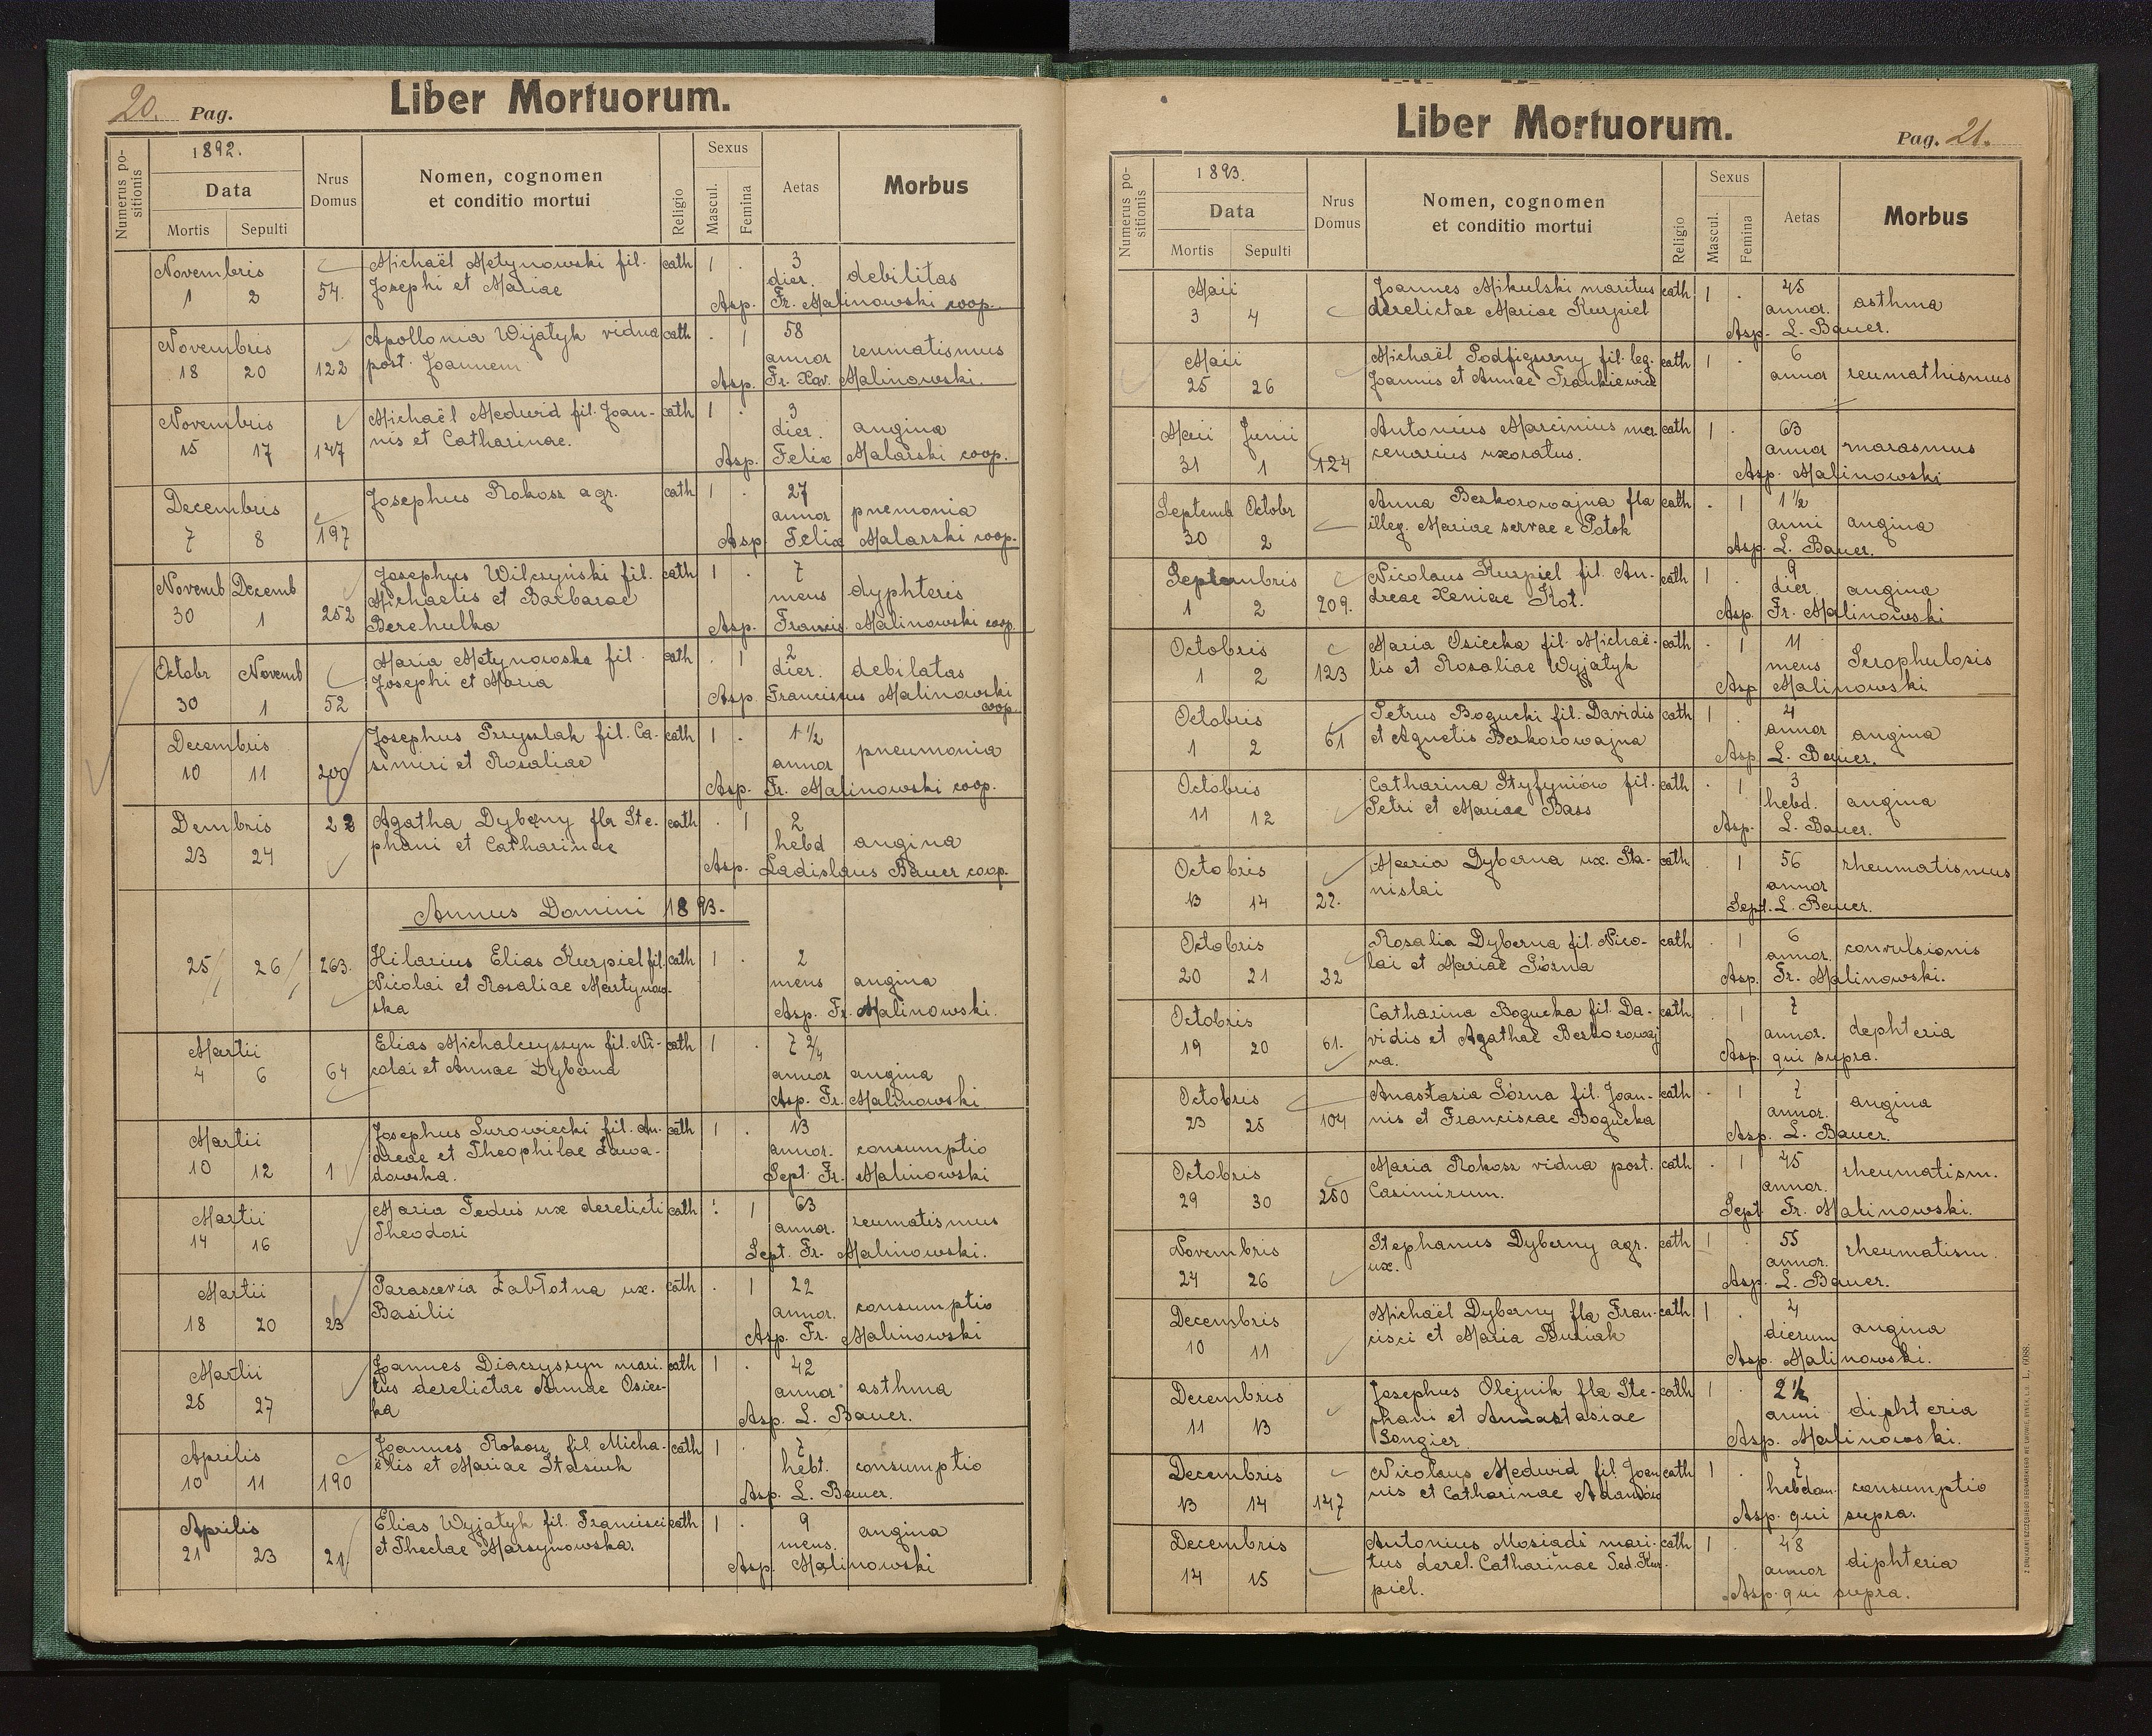 20. Pag.
Liber Mortuorum.
Numerus positionis
1892.
Data
Mortis Sepulti
Nrus Domus
Nomen, cognomen
et conditio mortui
Religio
Sexus
Mascul. Femina
Aetas
Morbus
Novembris Michaël Metynowski fil. cath 1 . 3
1 2 54. Josephi et Mariae dier. debilitas
Asp. Fr. Malinowski coop.
Novembris Apollonia Wijatyk vidua cath . 1 58
18 20 122 post. Joannem annor reumatismus
Asp. Fr. Xav. Malinowski.
Novembris Michaël Medwid fil. Joan- cath 1 . 3
15 17 147 nis et Catharinae. dier. angina
Asp. Felix Malarski coop.
Decembris Josephus Rokosz agr. cath 1 . 27
7 8 197 annor pnemonia
Asp Felix Malarski coop.
Novemb Dezemb Josephus Wilczyński fil. cath 1 . 7
30 1 252 Michaelis et Barbarae mens dyphteris
Berehulka Asp. Francis. Malinowski coop.
Octobr Novemb Maria Metynowska fil. cath . 1 2
30 1 52 Josephi et Maria dier. debilatas
Asp. Franciscus Malinowski
coop.
Decembris Josephus Przyszlak fil. Ca- cath 1 . 1 1/2
10 11 200 simiri et Rosaliae annor pneumonia
Asp. Fr. Malinowski coop.
Dembris 22 Agatha Dyberny fla Ste- cath . 1 2
23 24 phani et Catharinae hebd angina
Asp. Ladislaus Bauer coop.
Annus Domini 1893.
25 26 263. Hilarius Elias Kurpiel fil. cath 1 . 2
Nicolai et Rosaliae Martynow- mens angina
ska Asp. Fr. Malinowski.
Martii Elias Michalczyszyn fil. Ni- cath 1 . 7 2/4
4 6 64 colai et Annae Dyberna annor angina
Asp. Fr. Malinowski
Martii Josephus Surowiecki fil. An- cath 1 . 13
10 12 1 dreae et Theophilae Zawa- annor. consumptio
dowska. Sept. Fr. Malinowski
Martii Maria Feduś ux derelicti cath : 1 63
14 16 Theodori annor. reumatismus
Sept. Fr. Malinowski.
Martii Parascevia Zabłotna ux. cath . 1 22
18 20 23 Basilii annor. consumptio
Asp. Fr. Malinowski
Martii Joannes Diaczyszyn mari- cath 1 . 42
25 27 tus derelictae Annae Osiec- annor asthma
ka Asp. L. Bauer.
Aprilis Joannes Rokosz fil. Micha- cath 1 . 7
10 11 190 ëlis et Mariae Stasiuk hebt. consumptio
Asp. L. Bauer.
Aprilis Elias Wyjatyk fil. Francisci cath 1 . 9
21 23 21 et Theclae Marsynowska. mens. angina
Asp. Malinowski
Liber Mortuorum.
Pag. 21.
Numerus positionis
1893.
Data
Mortis Sepulti
Nrus Domus
Nomen, cognomen
et conditio mortui
Religio
Sexus
Mascul. Femina
Aetas
Morbus
Maii Joannes Mikulski maritus cath 1 . 45
3 4 derelictae Mariae Kurpiel annor. asthma
Asp. L. Bauer.
Maii Michaël Podfigurny fil. leg. cath 1 . 6
25 26 Joannis et Annae Frankiewicz annor reumathismus
Maii Junii Antonius Marcinius mer- cath 1 . 63
31 1 124 cenarius uxoratus. annor marasmus
Asp. Malinowski
Septemb Octobr Anna Beskorowajna fla cath . 1 1 1/2
30 2 illeg. Mariae servae e Potok anni angina
Asp. L. Bauer.
Septembris Nicolaus Kurpiel fil. An- cath 1 . 9
1 2 209. dreae Xeniae Kot. dier. angina
Asp. Fr. Malinowski
Octobris Maria Osiecka fil. Michaë- cath . 1 11
1 2 123 lis et Rosaliae Wyjatyk mens Scrophulosis
Asp Malinowski.
Octobris Petrus Bogucki fil. Davidis cath 1 . 4
1 2 61 et Agnetis Beskorowajna annor angina
Asp L. Bauer.
Octobris Catharina Styfyniów fil. cath . 1 3
11 12 Petri et Mariae Bass hebd. angina
Asp. L. Bauer.
Octobris Maria Dyberna ux. Sta- cath . 1 56 rheumatismus
13 14 22. nislai annor
Sept. L. Bauer.
Octobris Rosalia Dyberna fil. Nico- cath . 1 6
20 21 32 lai et Mariae Górna annor. convulsionis
Asp. Fr. Malinowski.
Octobris Catharina Bogucka fil. Da- cath . 1 7
19 20 61. vidis et Agathae Beskorowaj annor. dephteria
na. Asp. qui supra.
Octobris Anastasia Górna fil. Joan- cath . 1 7
23 25 104 nis et Franciscae Bogucka annor. angina
Asp. L. Bauer.
Octobris Maria Rokosz vidua post. cath . 1 45 rheumatism.
29 30 250 Casimirum. annor.
Sept. Fr. Malinowski.
Novembris Stephanus Dyberny agr. cath 1 . 55 rheumatism.
24 26 ux. annor.
Asp. L. Bauer.
Decembris Michaël Dyberny fla Fran- cath 1 . 4
10 11 cisci et Maria Busiak dierum angina
Asp. Malinowski.
Decembris Josephus Olejnik fla Ste- cath 1 . 2 1/2
11 13 phani et Annastasiae anni diphteria
Songier. Asp. Malinowski.
Decembris Nicolaus Medwid fil. Joan cath 1 . 7
13 14 147 nis et Catharinae Adamów hebdom. consumptio
Asp. qui supra.
Decembris Antonius Mosiadi mari- cath 1 . 48
14 15 tus derel. Catharinae Sed. Kur- annor diphteria
piel. Asp. qui supra.